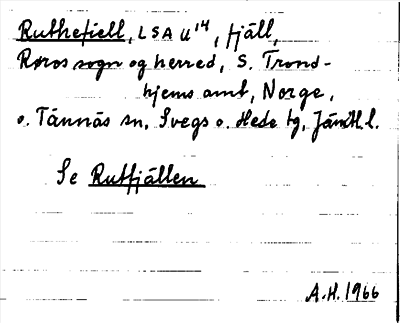 Ruthefiell, LSA U'14, fjäll,
Røros sogn og herred, S. Trond-
hjems amt, Norge,
o. Tännäs sn, Svegs o. Hede tg, Jämtl. l.
Se Rutfjällen
A.H. 1966